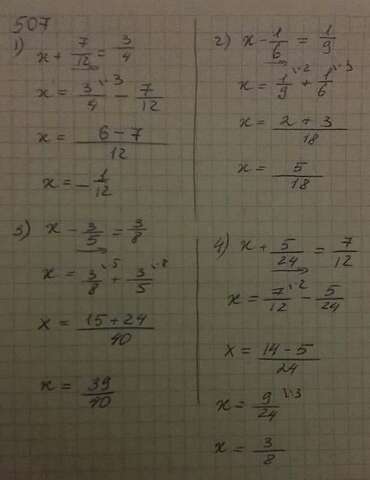 507
1) x + 7/12 = 3/4
x = 3/4 ·3 - 7/12
x = 6 - 7/12
x = - 1/12
2) x - 1/6 = 1/9
x = 1/9 ·2 + 1/6 ·3
x = 2 + 3/18
x = 5/18
3) x - 3/5 = 3/8
x = 3/8 ·5 + 3/5 ·8
x = 15 + 24/40
x = 39/40
4) x + 5/24 = 7/12
x = 7/12 ·2 - 5/24
x = 14 - 5/24
x = 9/24 :3
x = 3/8